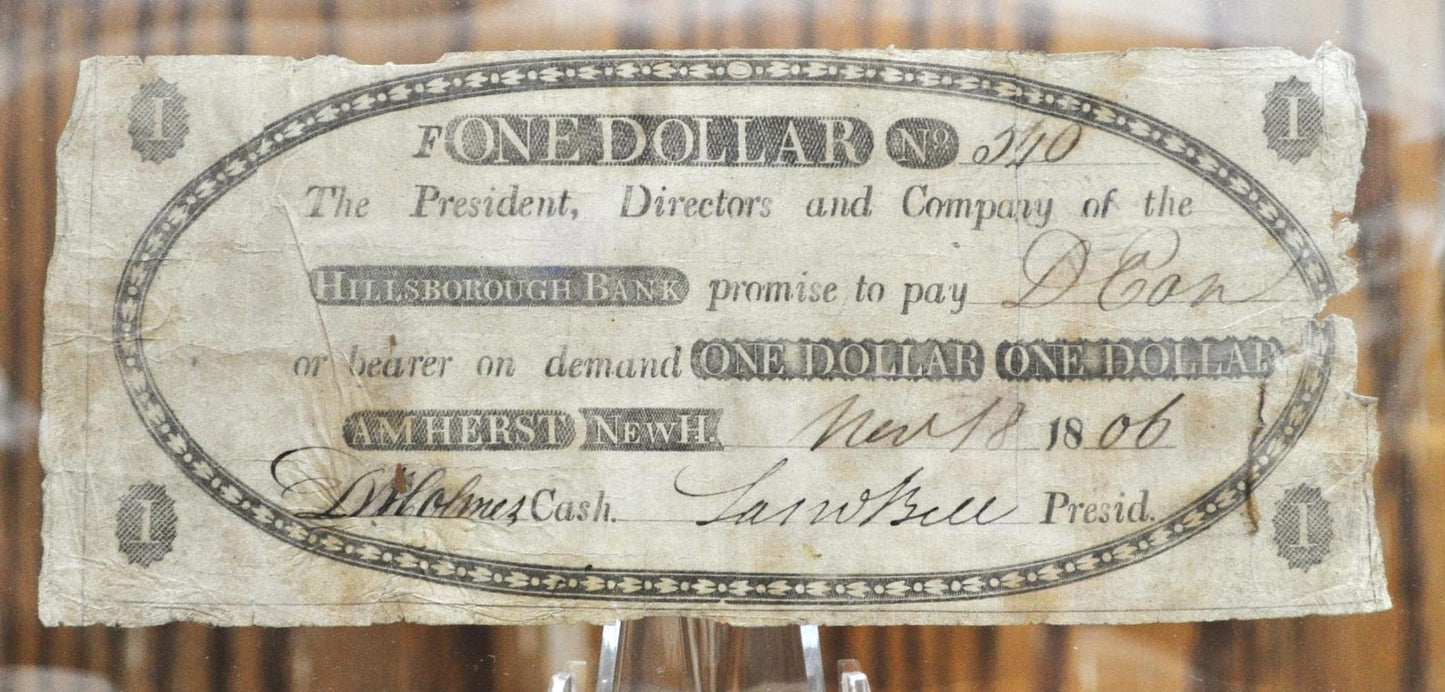 1 1
F ONE DOLLAR No. 540
The President, Directors and Company of the
HILLSBOROUGH BANK promise to pay D Eon
or bearer on demand ONE DOLLAR ONE DOLLAR
AMHERST NEW H. Nov 18 1806
D Holmes Cash. Sam Bell Presid.
1 1